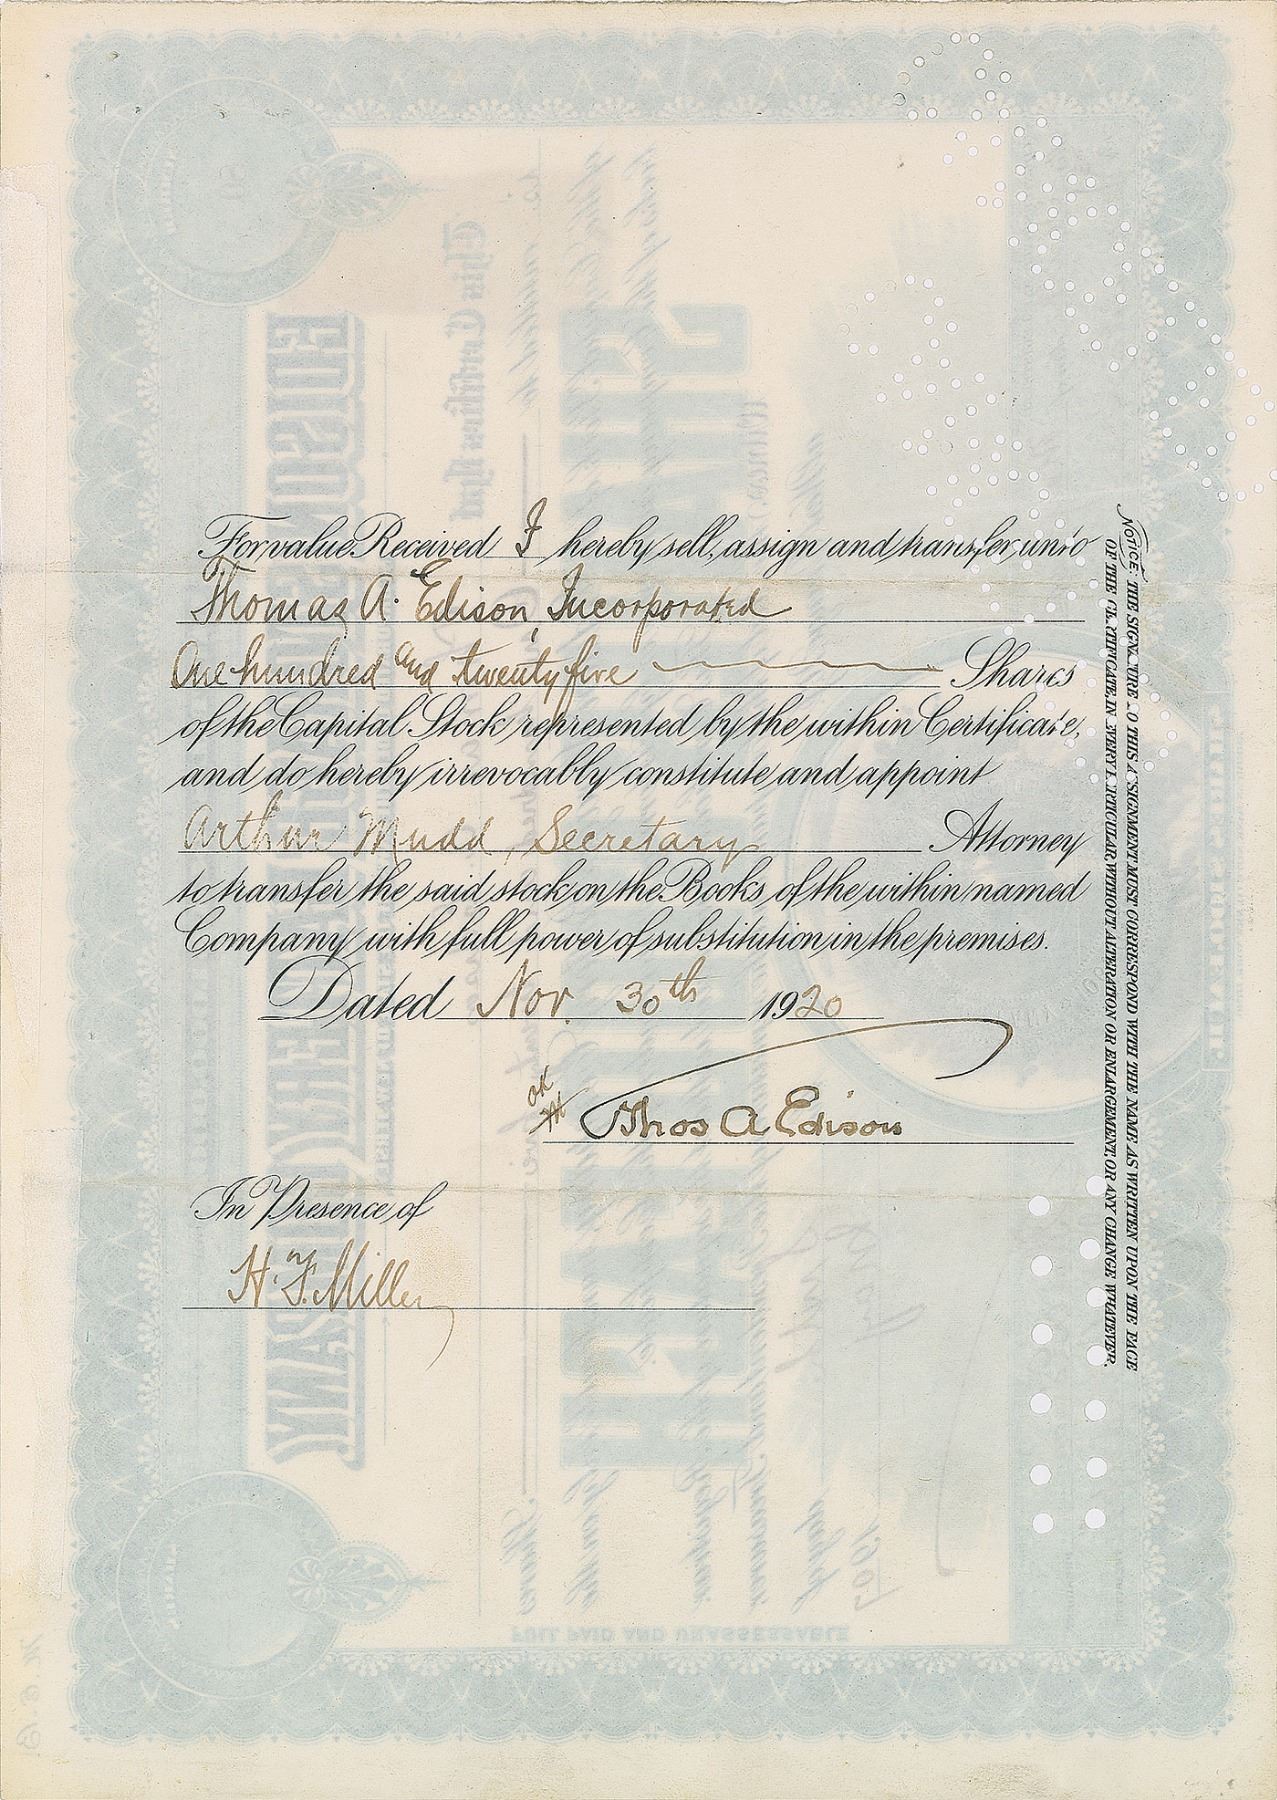 For value Received I hereby sell, assign and transfer unto
Thomas A. Edison, Incorporated
One hundred and twenty five Shares
of the Capital Stock represented by the within Certificate,
and do hereby irrevocably constitute and appoint
Arthur Mudd, Secretary Attorney
to transfer the said stock on the Books of the within named
Company with full power of substitution in the premises.
Dated Nov. 30th 1920
OK
Thos A Edison
In Presence of
H. F. Miller
NOTICE: THE SIGNATURE TO THIS ASSIGNMENT MUST CORRESPOND WITH THE NAME AS WRITTEN UPON THE FACE
OF THE CERTIFICATE, IN EVERY PARTICULAR WITHOUT ALTERATION OR ENLARGEMENT, OR ANY CHANGE WHATEVER.
FULL PAID AND UNASSESSABLE